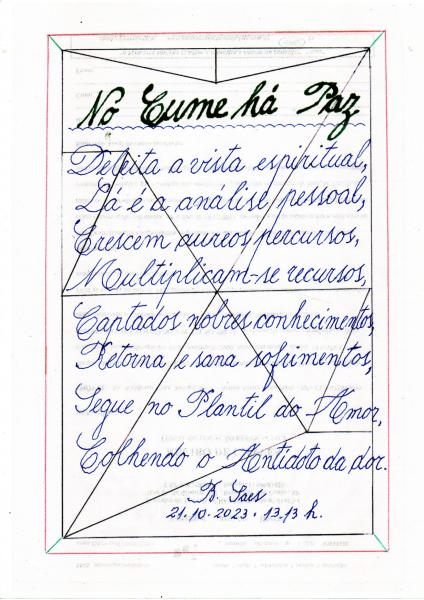 No Cume há Paz
Deleita a vista espiritual,
Lá é a análise pessoal,
Crescem aureos percursos,
Multiplicam-se recursos,
Captados nobres conhecimentos,
Retorna e sana sofrimentos,
Segue no Plantil do Amor,
Colhendo o Antidoto da dor.
B. Saes
21.10.2023. 13.13 h.